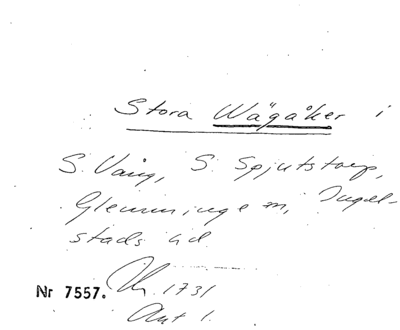 Stora Wägåker i
S. Vång, S. Spjutstorp,
Glemminge m, Ingel-
stads hd
Nr 7557. 1731
Akt 1.